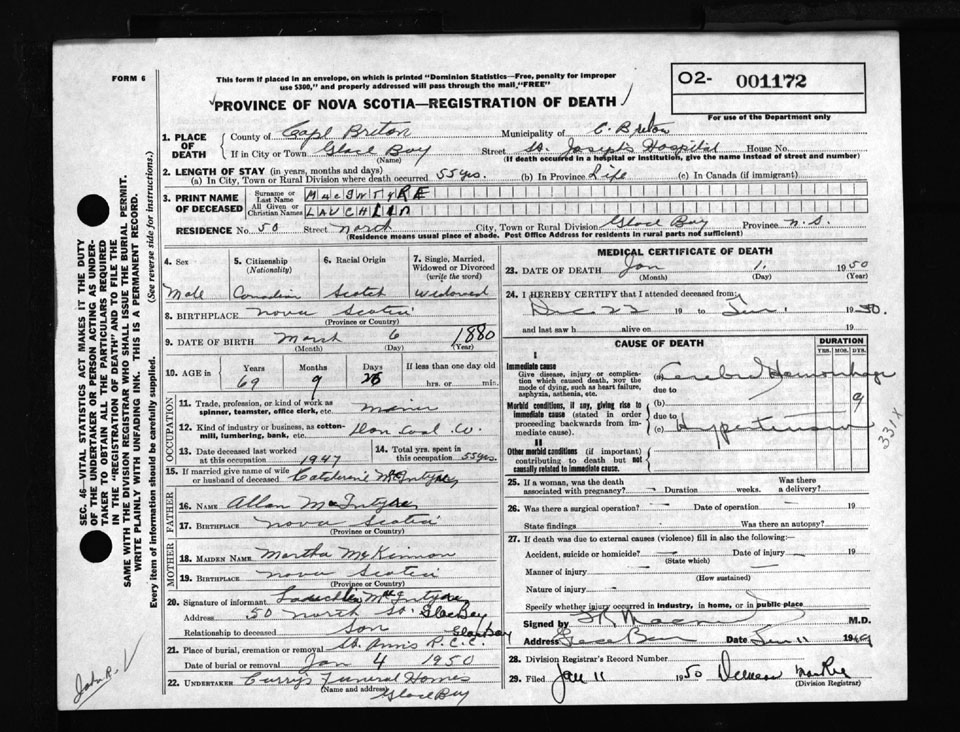 FORM 6
This form if placed in an envelope, on which is printed "Dominion Statistics—Free, penalty for improper
use $300," and properly addressed will pass through the mail "FREE"
PROVINCE OF NOVA SCOTIA—REGISTRATION OF DEATH
O2- 001172
For use of the Department only
SEC. 46—VITAL STATISTICS ACT MAKES IT THE DUTY
OF THE UNDERTAKER OR PERSON ACTING AS UNDER-
TAKER TO OBTAIN ALL THE PARTICULARS REQUIRED
IN THE "REGISTRATION OF DEATH" AND TO FILE THE
SAME WITH THE DIVISION REGISTRAR WHO SHALL ISSUE THE BURIAL PERMIT.
WRITE PLAINLY WITH UNFADING INK. THIS IS A PERMANENT RECORD.
Every item of information should be carefully supplied. (See reverse side for instructions.)
1. PLACE OF DEATH
County of Cape Breton Municipality of C. Breton
If in City or Town Glace Bay (Name) Street St. Joseph's Hospital House No.
(If death occurred in a hospital or institution, give the name instead of street and number)
2. LENGTH OF STAY (in years, months and days)
(a) In City, Town or Rural Division where death occurred 55 yrs. (b) In Province Life (c) In Canada (if immigrant)
3. PRINT NAME OF DECEASED
Surname or Last Name MacINTYRE
All Given or Christian Names LAUCHLIN
RESIDENCE No. 50 Street North City, Town or Rural Division Glace Bay Province N.S.
(Residence means usual place of abode. Post Office Address for residents in rural parts not sufficient)
4. Sex Male
5. Citizenship (Nationality) Canadian
6. Racial Origin Scotch
7. Single, Married, Widowed or Divorced (write the word) Widowed
8. BIRTHPLACE Nova Scotia
(Province or Country)
9. DATE OF BIRTH March 6 1880
(Month) (Day) (Year)
10. AGE in Years 69 Months 9 Days 26 If less than one day old hrs. or min.
OCCUPATION
11. Trade, profession, or kind of work as
spinner, teamster, office clerk, etc. Miner
12. Kind of industry or business, as cotton-
mill, lumbering, bank, etc. Dom Coal Co.
13. Date deceased last worked
at this occupation 1947
14. Total yrs. spent in
this occupation 55 yrs.
15. If married give name of wife
or husband of deceased Catherine McIntyre
FATHER
16. Name Allan MacIntyre
17. BIRTHPLACE Nova Scotia
(Province or Country)
MOTHER
18. MAIDEN NAME Martha McKinnon
19. BIRTHPLACE Nova Scotia
(Province or Country)
20. Signature of informant Lauchlin McIntyre
Address 50 North St. Glace Bay
Relationship to deceased Son
21. Place of burial, cremation or removal St. Anns R.C.C. Glace Bay
Date of burial or removal Jan 4 1950
22. UNDERTAKER Curry's Funeral Homes
(Name and address) Glace Bay
John R.
MEDICAL CERTIFICATE OF DEATH
23. DATE OF DEATH Jan 1. 1950
(Month) (Day) (Year)
24. I HEREBY CERTIFY that I attended deceased from:
Dec 22 19 to Jan. 1 1950.
and last saw h alive on 19
CAUSE OF DEATH
DURATION
YRS. MOS. DYS.
I
Immediate cause
Give disease, injury or complica-
tion which caused death, NOT the
mode of dying, such as heart failure,
asphyxia, asthenia, etc.
(a) Cerebral Hemorrhage 9
due to
Morbid conditions, if any, giving rise to
immediate cause (stated in order
proceeding backwards from im-
mediate cause).
(b)
due to
(c) Hypertension
331X
II
Other morbid conditions (if important)
contributing to death but not
causally related to immediate cause.
25. If a woman, was the death
associated with pregnancy? — Duration weeks. Was there
a delivery?
26. Was there a surgical operation? — Date of operation — 19
State findings Was there an autopsy?
27. If death was due to external causes (violence) fill in also the following:
Accident, suicide or homicide? — Date of injury — 19
(State which)
Manner of injury —
(How sustained)
Nature of injury —
Specify whether injury occurred in industry, in home, or in public place
Signed by M.D.
Address Glace Bay Date Jan 11 1949
28. Division Registrar's Record Number
29. Filed Jan 11 1950
(Division Registrar)